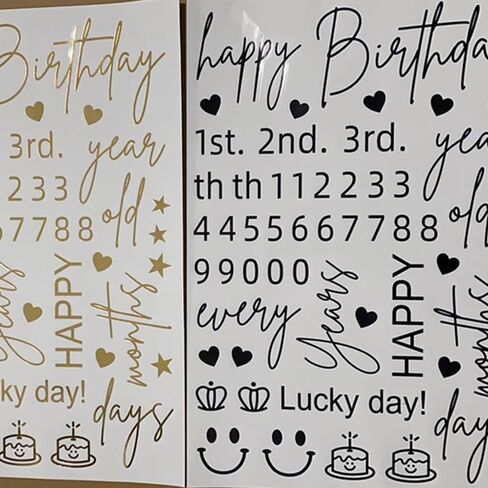 Birthday
3rd. year
2 2 3 3
old
6 7 7 8 8
years
HAPPY
months
ky day!
days
happy Birthda
1st. 2nd. 3rd. year
th th 1 1 2 2 3 3
old
4 4 5 5 6 6 7 7 8 8
9 9 0 0 0 0
every
years
HAPPY
months
Lucky day!
days